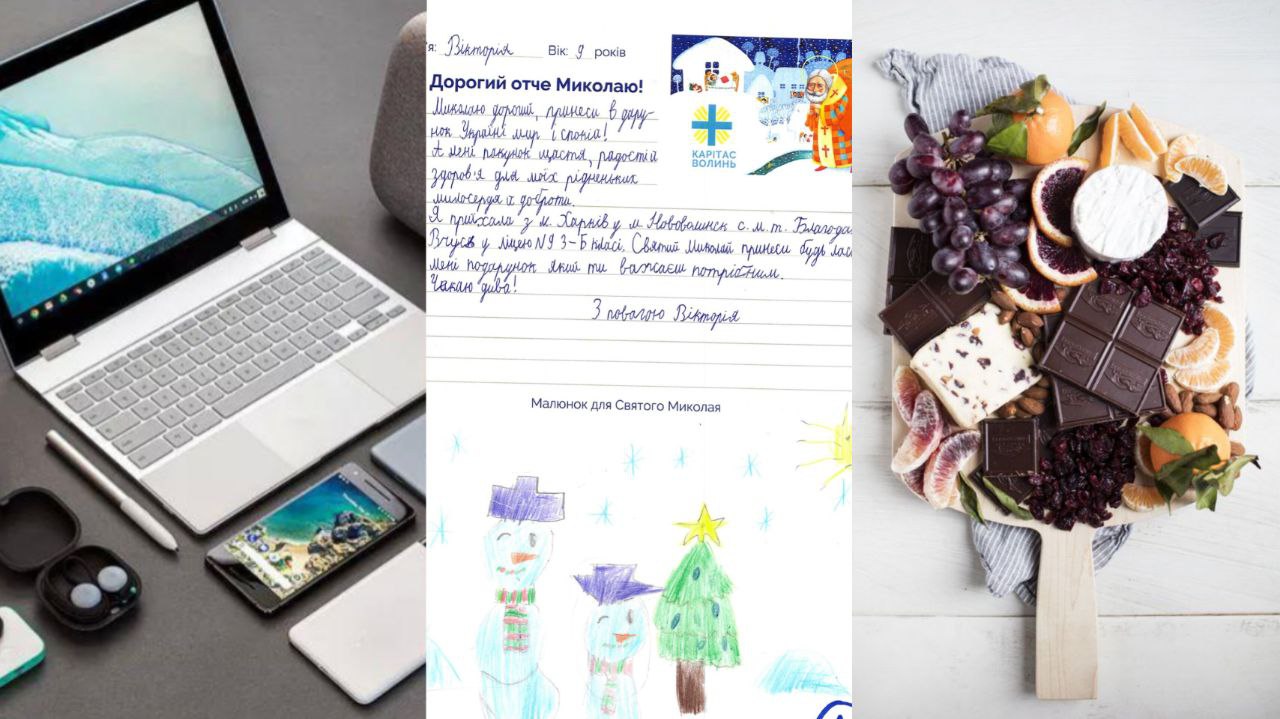 я: Вікторія Вік: 9 років
Дорогий отче Миколаю!
Миколаю дорогий, принеси в дару-
нок Україні мир і спокій!
А мені пакунок щастя, радості й
здоров'я для моїх рідненьких
милосердя і доброти.
Я приїхала з м. Харків у м. Нововолинськ с.м.т. Благодат
Вчусь у ліцею №9 3-Б класі. Святий Миколай принеси будь лас
мені подарунок який ти вважаєш потрібним.
Чекаю дива!
З повагою Вікторія
КАРІТАС
ВОЛИНЬ
Малюнок для Святого Миколая